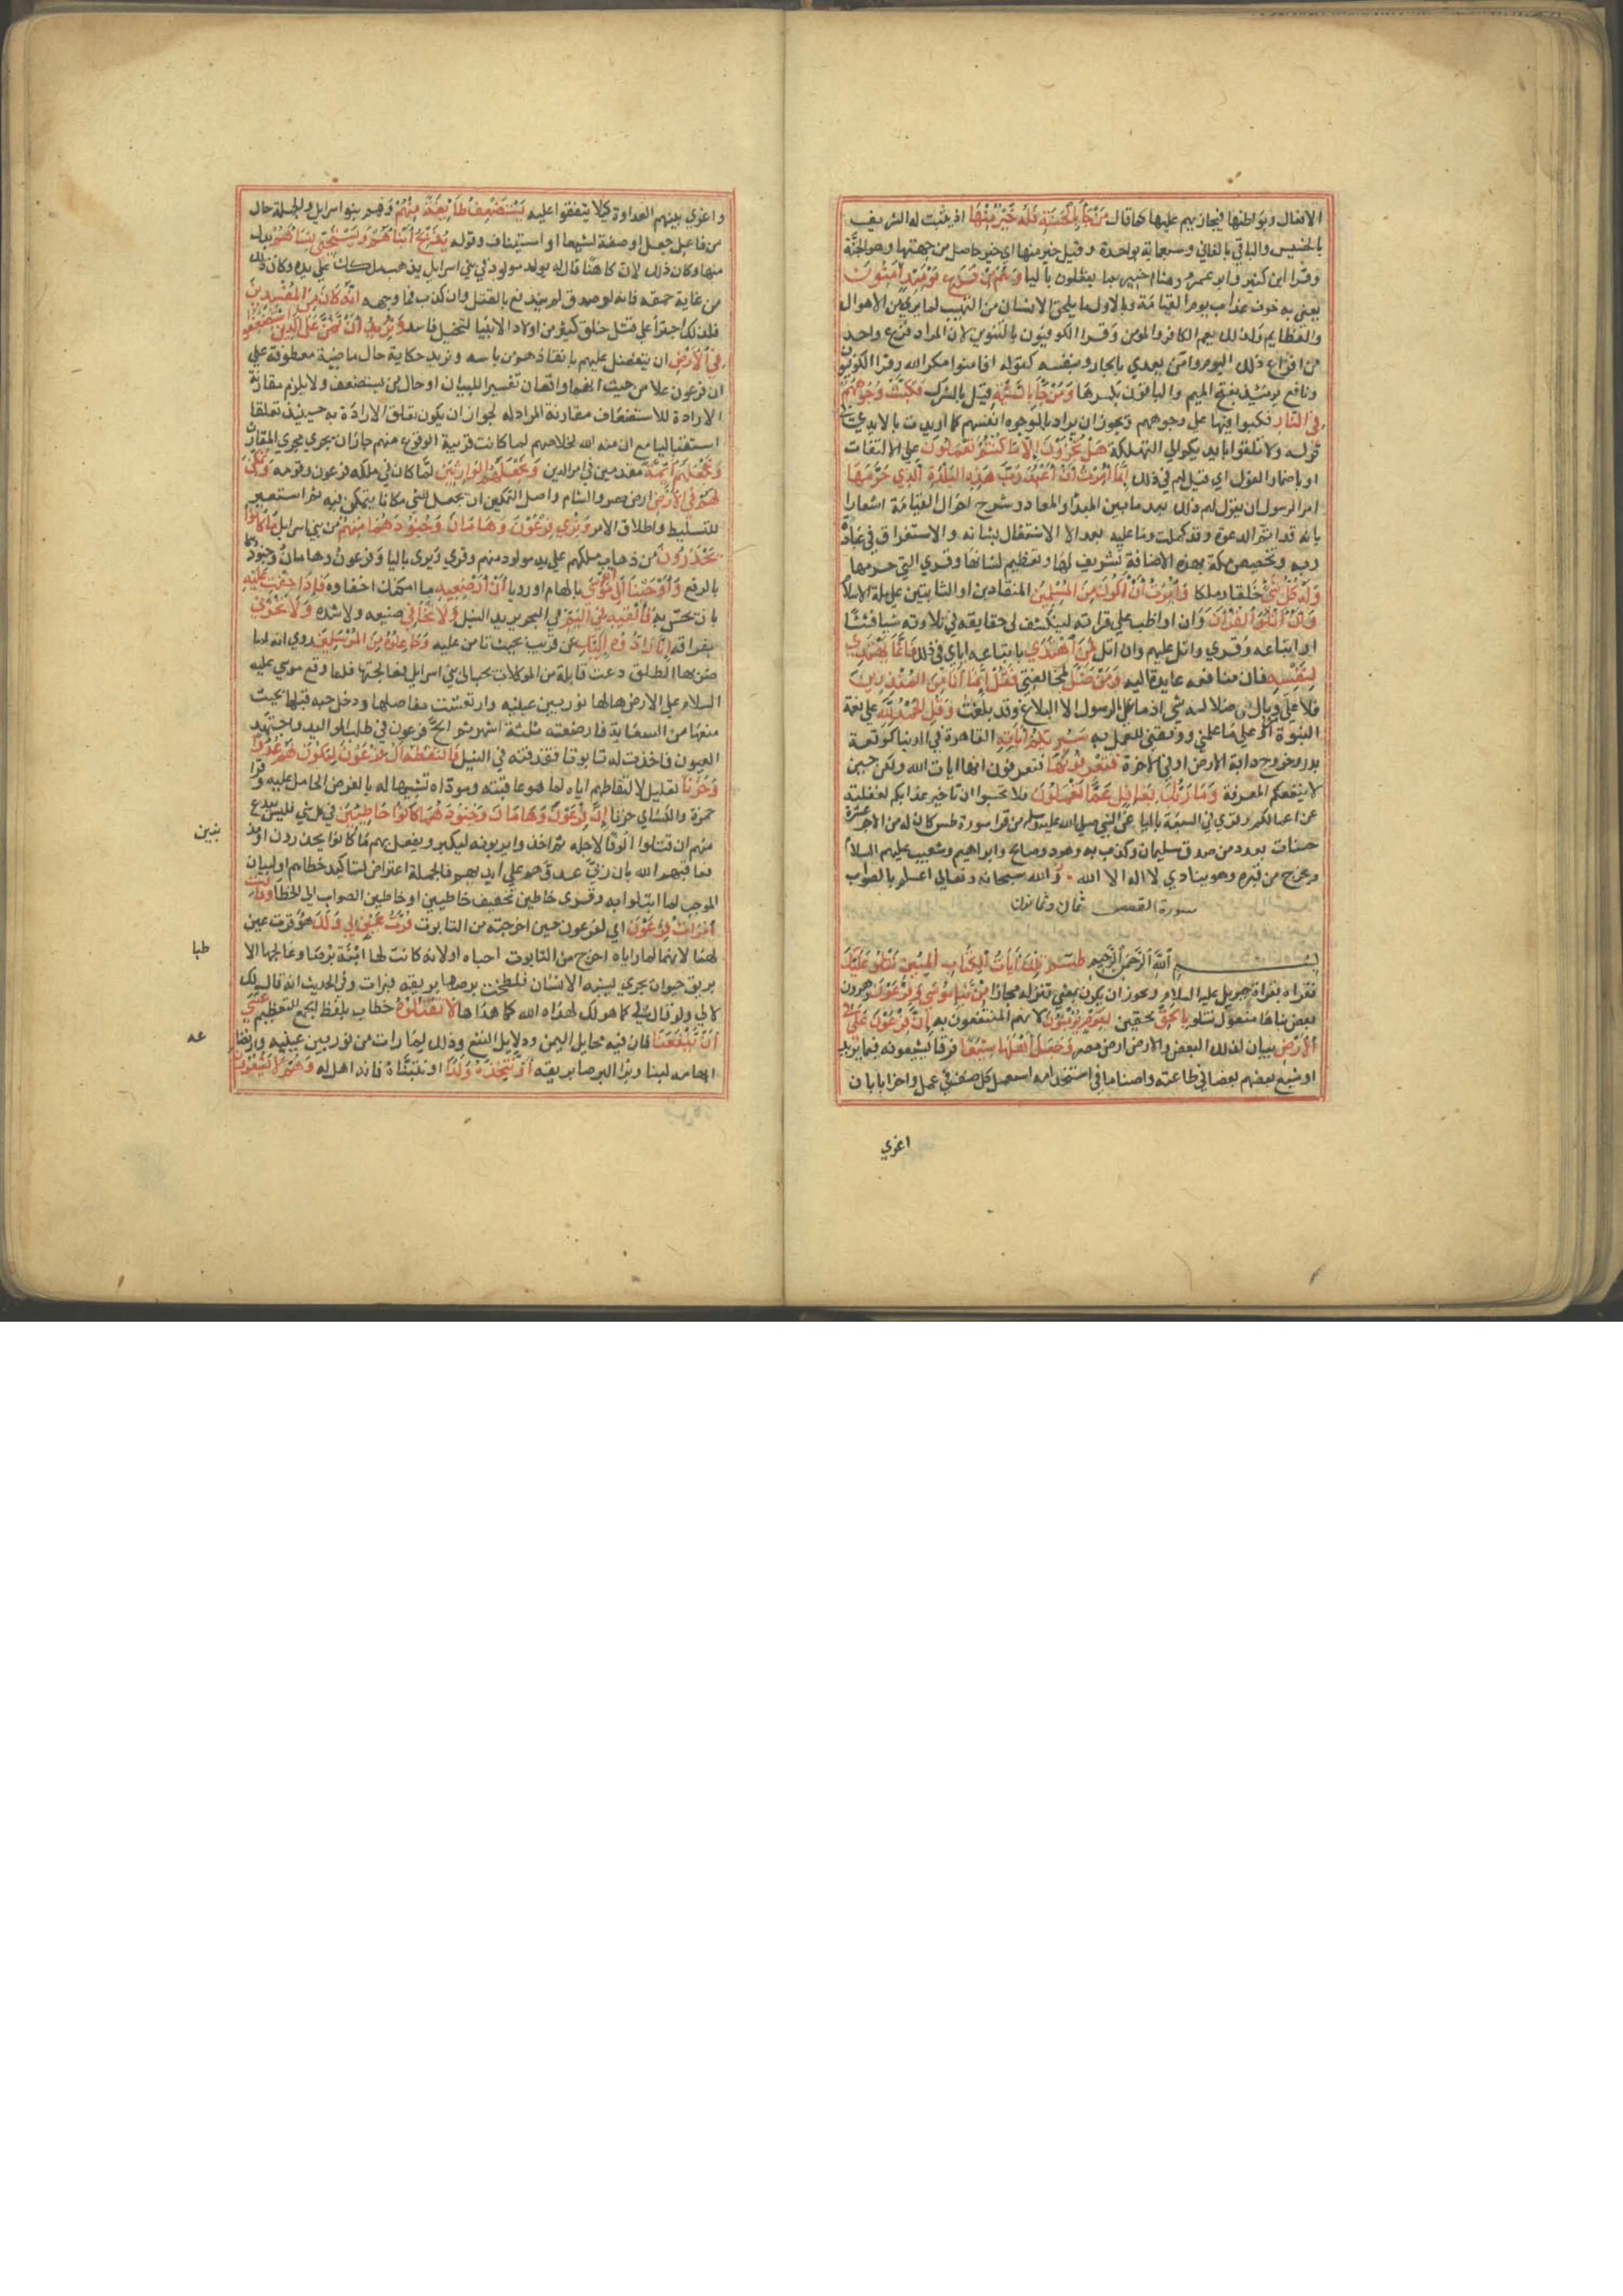 الافعال وبواطنها فيجازيهم عليها كما قال من جآء بالحسنة فله خير منها اذ يثبت له الشريف
بالخسيس والباقي بالفاني وسبعماية بواحدة وقيل خير منها اي خير حاصل من جهتها وهو الجنة
وقرا ابن كثير وابو عمرو وهشام خبير بما يفعلون باليا وهم من فزع يومئذ آمنون
يعني به خوف عذاب يوم القيامة وبالاول ما يلحق الانسان من التهيب لما يري من الاهوال
والعظايم ولذلك يعم الكافر والمومن وقرا الكوفيون بالتنوين لان المراد فزع واحد
من افزاع ذلك اليوم وامن يعدي بالجار وبنفسه كقوله افامنوا مكر الله وقرا الكوفيون
ونافع يومئذ بفتح الميم والباقون بكسرها ومن جآء بالسيئة قيل بالشرك فكبت وجوههم
في النار فكبوا فيها علي وجوههم ويجوز ان يراد بالوجوه انفسهم كما اريدت بالايدي في
قوله ولا تلقوا بايديكم الي التهلكة هل تجزون الا ما كنتم تعملون علي الالتفات
او باضمار القول اي قيل لهم ذلك انما امرت ان اعبد رب هذه البلدة الذي حرمها
امر الرسول بان يقول لهم ذلك بعد ما بين المبدأ والمعاد وشرح احوال القيامة اشعارا
بانه قد اتم الدعوة وقد كملت وما عليه بعد الا الاشتغال بشانه والاستغراق في عبادة
ربه وتخصيص مكة بهذه الاضافة تشريف لها وتعظيم لشانها وقري التي حرمها
وله كل شئ خلقا وملكا وامرت ان اكون من المسلمين المنقادين او الثابتين علي ملة الاسلام
وان اتلو القرآن وان اواظب علي قراته لينكشف لي حقايقه في تلاوته شيا فشيا
او اتباعه وقري واتل عليهم وان اتل فمن اهتدي باتباعه اياي في ذلك فانما يهتدي
لنفسه فان منافعه عايدة اليه ومن ضل بمخالفتي فقل انما انا من المنذرين
فلا علي وبال ضلاله شي اذ ما علي الرسول الا البلاغ وقد بلغت وقل الحمد لله علي نعمة
النبوة او علي ما علمني ووفقني للعمل به سيريكم آياته القاهرة في الدنيا كوقعة
بدر وخروج دابة الارض او في الاخرة فتعرفونها فتعرفون انها ايات الله ولكن حين
لا ينفعكم المعرفة وما ربك بغافل عما تعملون فلا تحسبوا ان تاخير عذابكم لغفلته
عن اعمالكم وقري في السبعة باليا عن النبي صلي الله عليه وسلم من قرا سورة طس كان له من الاجر عشر
حسنات بعدد من صدق سليمان وكذب به وهود وصالح وابراهيم وشعيب عليهم السلام
ويخرج من قبره وهو ينادي لا اله الا الله والله سبحانه وتعالي اعلم بالصواب
سورة القصص ثمان وثمانون
بسم الله الرحمن الرحيم طسم تلك آيات الكتاب المبين نتلو عليك
نقراه بقراة جبريل عليه السلام ويجوز ان يكون بمعني ننزله مجازا من نبأ موسي وفرعون
بعض نباهما مفعول نتلو بالحق محقين لقوم يؤمنون لانهم المنتفعون به ان فرعون علا في
الارض بيان لذلك البعض والارض ارض مصر وجعل اهلها شيعا فرقا يشيعونه فيما يريد
او يشيع بعضهم بعضا في طاعته واصنافا في استخدامه استعمل كل صنف في عمل واحزابا بان
اغري
واغري بينهم العداوة كيلا يتفقوا عليه يستضعف طآئفة منهم وهم بنو اسرايل والجملة حال
من فاعل جعل او صفة لشيعا او استيناف وقوله يذبح ابنآءهم ويستحيي نسآءهم بدل
منها وكان ذلك لان كاهنا قال له يولد مولود في بني اسرايل يذهب ملكك علي يده وكان ذلك
من غاية حمقه فانه لو صدق لم يندفع بالقتل وان كذب فما وجهه انه كان من المفسدين
فلذلك اجترأ علي قتل خلق كثير من اولاد الانبيا لتخيل فاسد ونريد ان نمن علي الذين استضعفوا
في الارض ان نتفضل عليهم بانقاذهم من باسه ونريد حكاية حال ماضية معطوفة علي
ان فرعون علا من حيث انهما واقعان تفسيرا للبيان او حال من يستضعف ولا يلزم مقارنة
الارادة للاستضعاف مقارنة المراد له لجواز ان يكون تعلق الارادة به حينيذ تعلقا
استقباليا مع ان منة الله بخلاصهم لما كانت قريبة الوقوع منهم جاز ان يجري مجري المقارن
ونجعلهم ائمة مقدمين في امر الدين ونجعلهم الوارثين لما كان في ملكه فرعون وقومه ونمكن
لهم في الارض ارض مصر والشام واصل التمكين ان يجعل للشي مكانا يتمكن فيه ثم استعير
للتسليط واطلاق الامر ونري فرعون وهامان وجنودهما منهم من بني اسرايل ما كانوا
يحذرون من ذهاب ملكهم علي يد مولود منهم وقري ويري باليا وفرعون وهامان وجنودهما
بالرفع واوحينا الي ام موسي بالهام او رويا ان ارضعيه ما امكنك اخفاوه فاذا خفت عليه
بان يحس به فالقيه في اليم في البحر يريد النيل ولا تخافي ضيعه ولا شدة ولا تحزني
بفراقه انا رادوه اليك عن قريب بحيث تامن عليه وجاعلوه من المرسلين روي انه لما
ضربها الطلق دعت قابلة من الموكلات بحبالي بني اسرايل فعالجتها فلما وقع موسي عليه
السلام علي الارض هالها نور بين عينيه وارتعشت مفاصلها ودخل حبه قلبها بحيث
منعها من السعاية فارضعته ثلثة اشهر ثم الح فرعون في طلب المواليد واجتهد
العيون فاخذت له تابوتا فقذفته في النيل فالتقطه آل فرعون ليكون لهم عدوا
وحزنا تعليل لالتقاطهم اياه لما هو عاقبته ومودّاه تشبيها له بالغرض الحامل عليه وقرا
حمزة والكساي حزنا ان فرعون وهامان وجنودهما كانوا خاطئين في كل شي فليس ببدع
منهم ان قتلوا الوفا لاجله ثم اخذوا يربونه ليكبر ويفعل بهم ما كانوا يحذرون او مذ
فعاقبهم الله بان ربي عدوهم علي ايديهم فالجملة اعتراض لتاكيد خطاهم او لبيان
الموجب لما ابتلوا به وقري خاطين تخفيف خاطيين او خاطين الصواب الي الخطا وقالت
امرأت فرعون اي لفرعون حين اخرجته من التابوت قرت عين لي ولك هو قرت عين
لهنا لانهما لما راياه اخرج من التابوت احباه او لانه كانت لها ابنة برصا وعالجها الا
بريق حيوان بحري يشبه الانسان فلطخت برصها بريقه فبرات وفي الحديث انه قال لك
لا لي ولو قال لي كما هو لك لهداه الله كما هداها لا تقتلوه خطاب بلفظ الجمع للتعظيم عسي
ان ينفعنا فان فيه مخايل اليمن ودلايل النفع وذلك لما رات من نور بين عينيه وارتضاعه
ابهامه لبنا وبرا البرصا بريقه او نتخذه ولدا او نتبناه فانه اهل له وهم لا يشعرون
بنين
طبا
عه